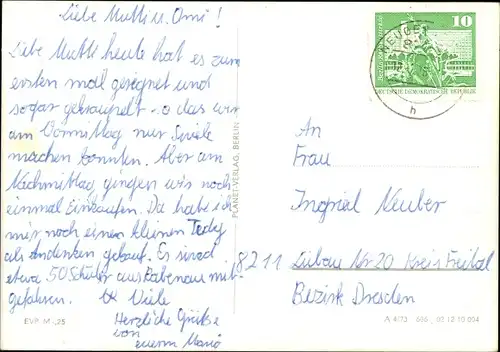 Liebe Mutti u. Omi!
Liebe Mutti heute hat es zum
ersten mal geregnet und
sogar gegraupelt so das wir
am Vormittag nur Spiele
machen konnten. Aber am
Nachmittag gingen wir noch
einmal Einkaufen. Da habe ich
mir noch einen kleinen Tedy
als Andenken gekauf. Es sind
etwa 50 Schüler aus Rabenau mit-
gefahren. Viele
Herzliche Grüße
von
euerm Mario
EVP M -,25
PLANET-VERLAG, BERLIN
10
DEUTSCHE DEMOKRATISCHE REPUBLIK
h
An
Frau
Ingrid Neuber
8211 Lübau Nr 20 Kreis Freital
Bezirk Dresden